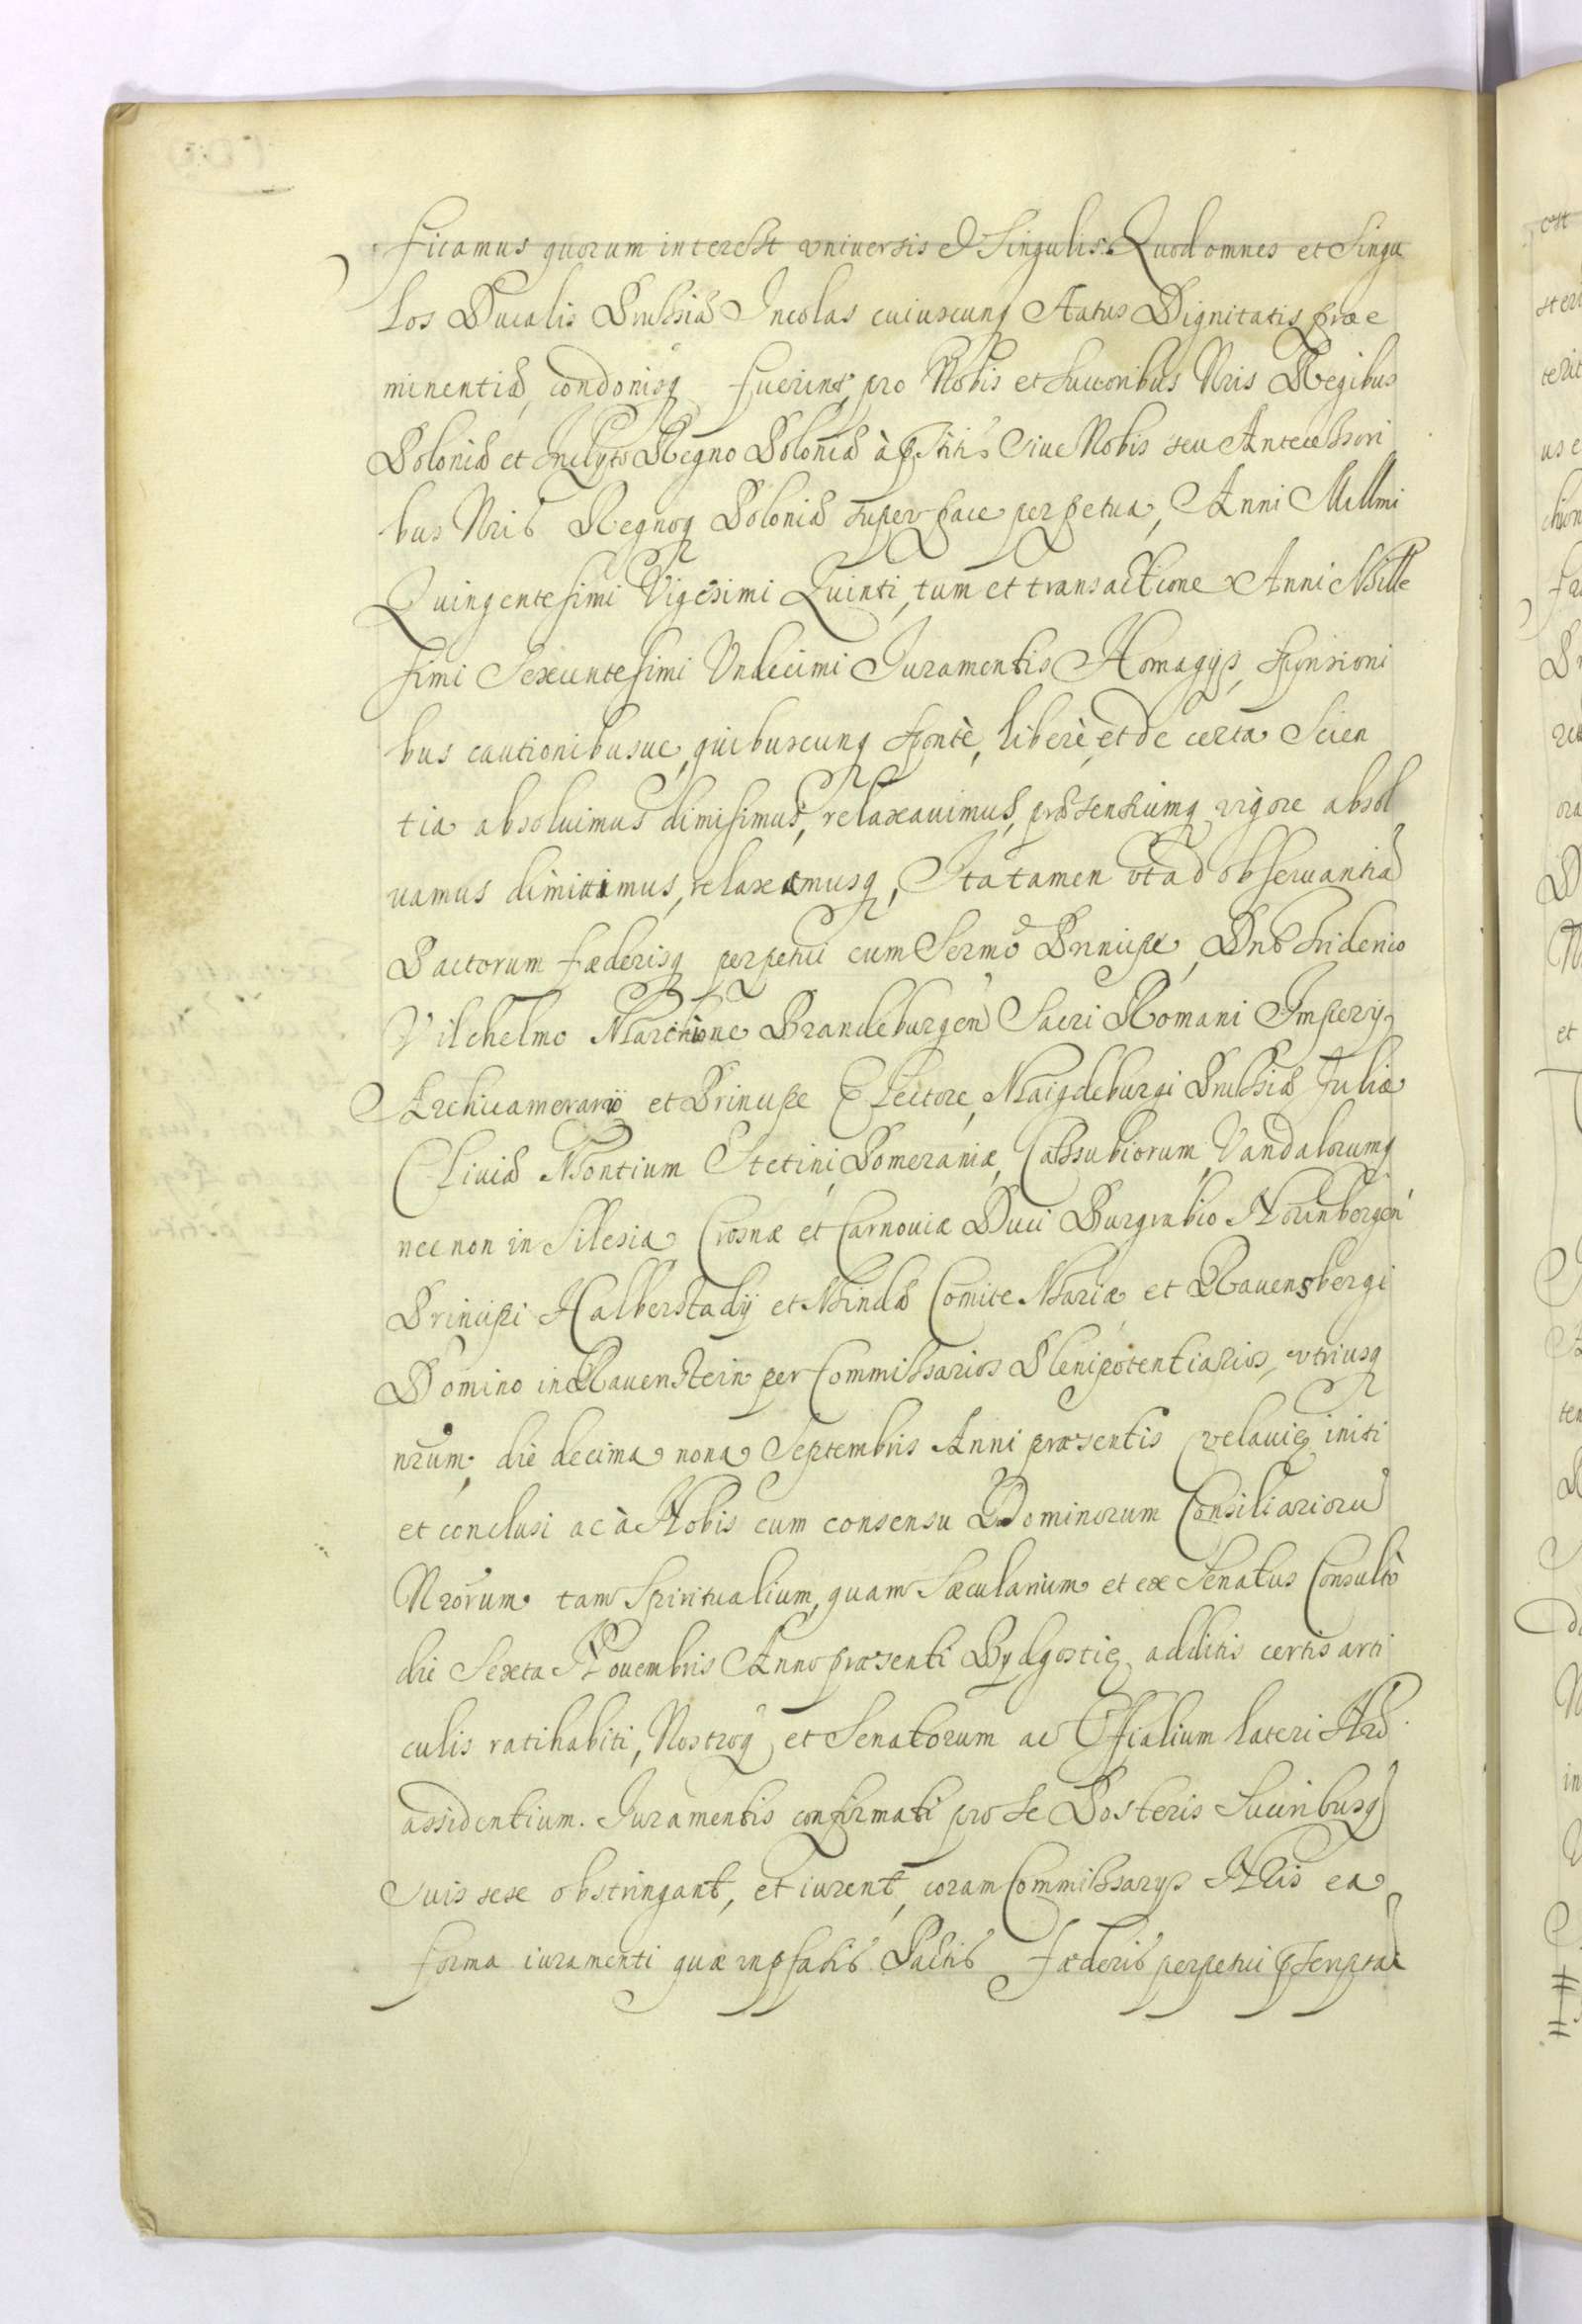 ficamus quorum interest vniuersis et Singulis. Quod omnes et Singu
los Ducalis Prussiæ Incolas cuiuscunq Status Dignitatis præe
minentiæ, condonisq fuerint, pro Nobis et Succoribus Nris Regibus
Poloniæ et Inclyto Regno Poloniæ à pstitis siue Nobis seu Antecessori
bus Nris Regnoq Poloniæ super pace perpetua, Anni Millmi
Quingentesimi Vigesimi Quinti, tum et transactione Anni Mille
simi Sexcentesimi Vndecimi Iuramentis Homagijs, sponsioni
bus cautionibusue, quibuscunq spontè, liberè, et de certa Scien
tia absoluimus dimisimus, relaxauimus, præsentiumq vigore absol
uamus dimittimus, relaxamusq, Ita tamen vt ad obseruantiã
Pactorum fæderisq perpetui cum Sermo Principe, Dno Friderico
Vilchelmo Marchione Brandeburgen Sacri Romani Imperij
Archicamerario et Principe Electore, Maigdeburgi Prussiæ Iuliæ
Cliuiæ Montium Stetini, Pomeraniæ, Cassubiorum, Vandalorumq
nec non in Silesia, Crosnæ et Carnouiæ Duci Burgrabio Norinbergen
Principi Halberstadij et Mindæ Comite Mariæ et Rauensbergi
Domino in Rauenstein per Commissarios Plenipotentiarios, vtriusq
nrum, die decima nona Septembris Anni præsentis velauiæ initi
et conclusi ac à Nobis cum consensu Dominorum Consiliarioru
Nrorum tam Spiritualium, quam Sæcularium et ex Senatus Consulto
die Sexta Nouembris Anno præsenti Bydgostiæ additis certis arti
culis ratihabiti, Nostroq et Senatorum ac Officialium lateri Nro
assidentium. Iuramentis confirmati pro se Posteris Succribusq
suis sese obstringant, et iurent, coram Commissarijs Nris ea
forma iuramenti quæ in pfatis Pactis fæderis perpetui pscripta